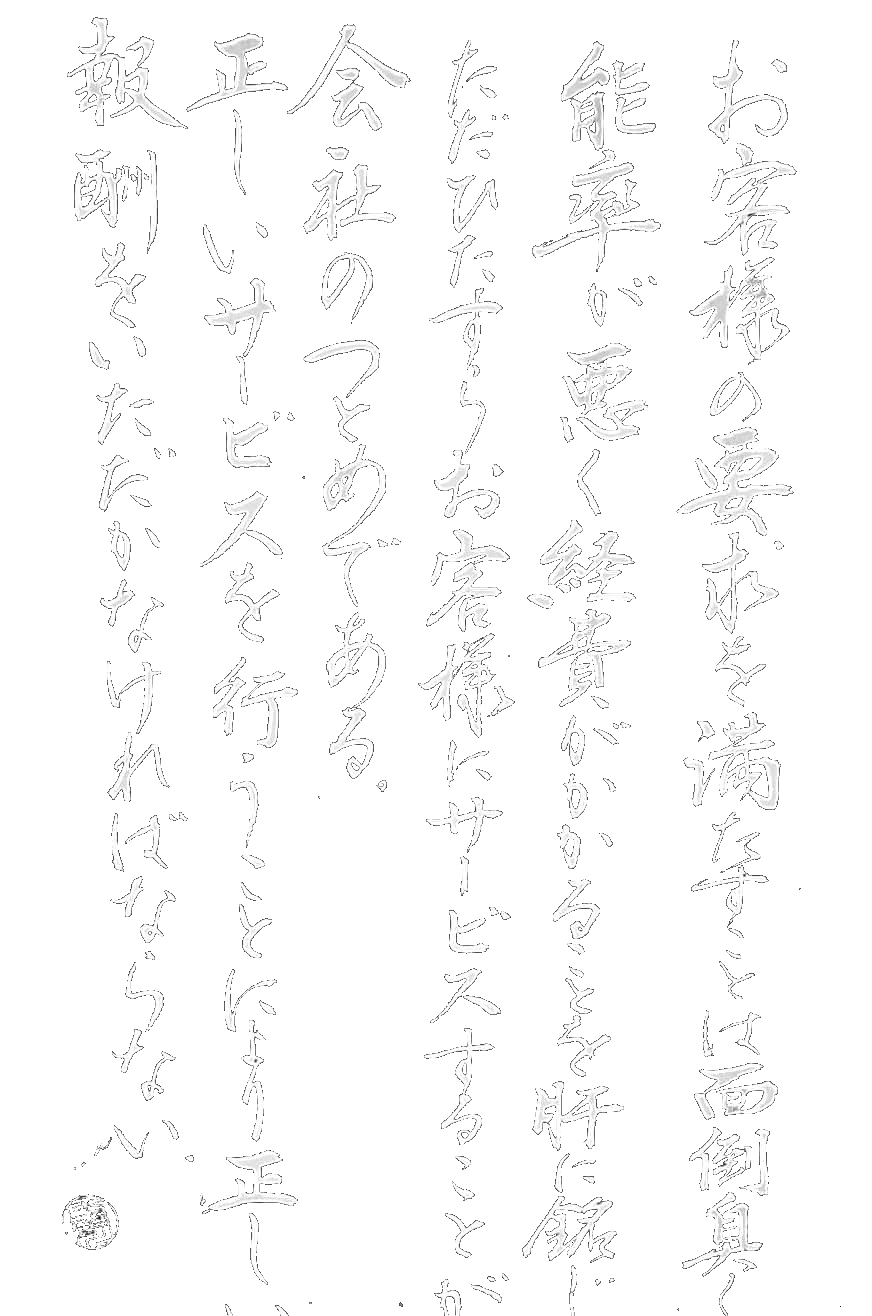 お客様の要求を満たすことは面倒臭く
能率が悪く経費がかかることを肝に銘じ
ただひたすらお客様にサービスすることが
会社のつとめである。
正しいサービスを行うことにより正しい
報酬をいただかなければならない